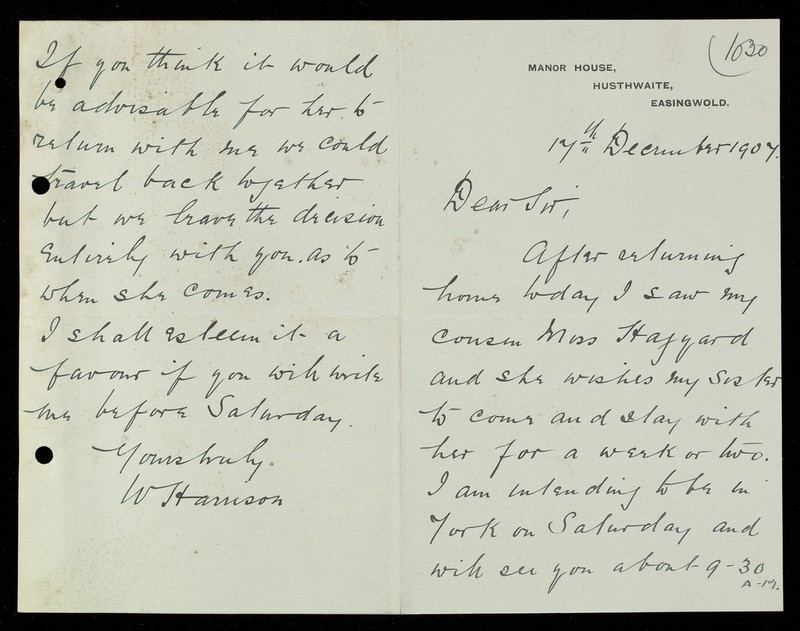 1030
MANOR HOUSE,
HUSTHWAITE,
EASINGWOLD.
17th December 1907.
Dear Sir,
After returning
home today I saw my
cousin Miss Haggard
and she wishes my Sister
to come and stay with
her for a week or two.
I am intending to be in
York on Saturday and
will see you about 9-30
A-M.
If you think it would
be advisable for her to
return with me we could
travel back together
but we leave the decision
entirely with you. as to
when she comes.
I shall esteem it a
favour if you will write
me before Saturday.
Yours truly.
W Harrison